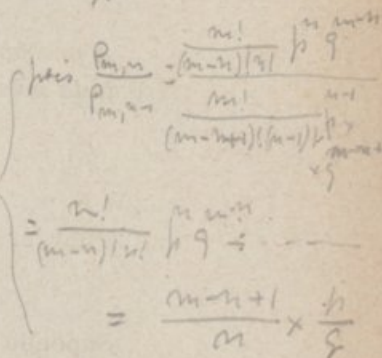 pois P_{m,n} / P_{m,n-1} = m! / (m-n)! n! p^n q^{m-n}
m! / (m-n+1)! (n-1)! p^{n-1} × × q^{m-n+1}
= m! / (m-n)! n! p^n q^{m-n} ÷ - - -
= m-n+1 / n × p / q